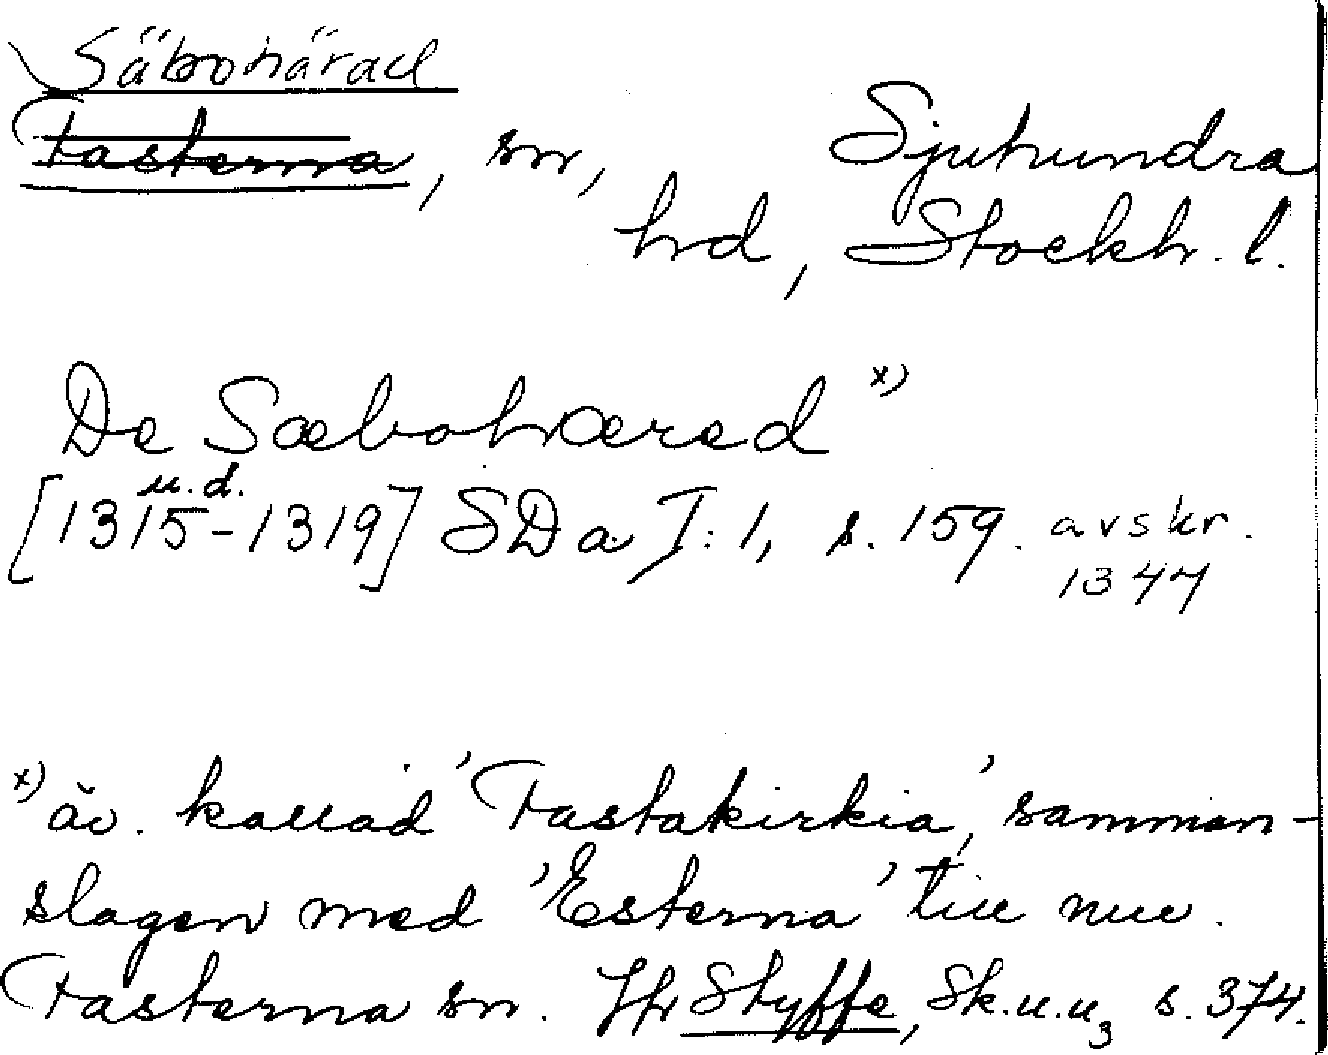 Säbohärad
Fasterna, sn, Sjuhundra
hd, Stockh. l.
De Sæbohæred x)
u.d.
[1315-1319] SDa I:1, s. 159. avskr.
1344
x) äv. kallad 'Fastakirkia', samman-
slagen med 'Esterna' till nuv.
Fasterna sn. Jfr Styffe, Sk.u.u3 s. 374.